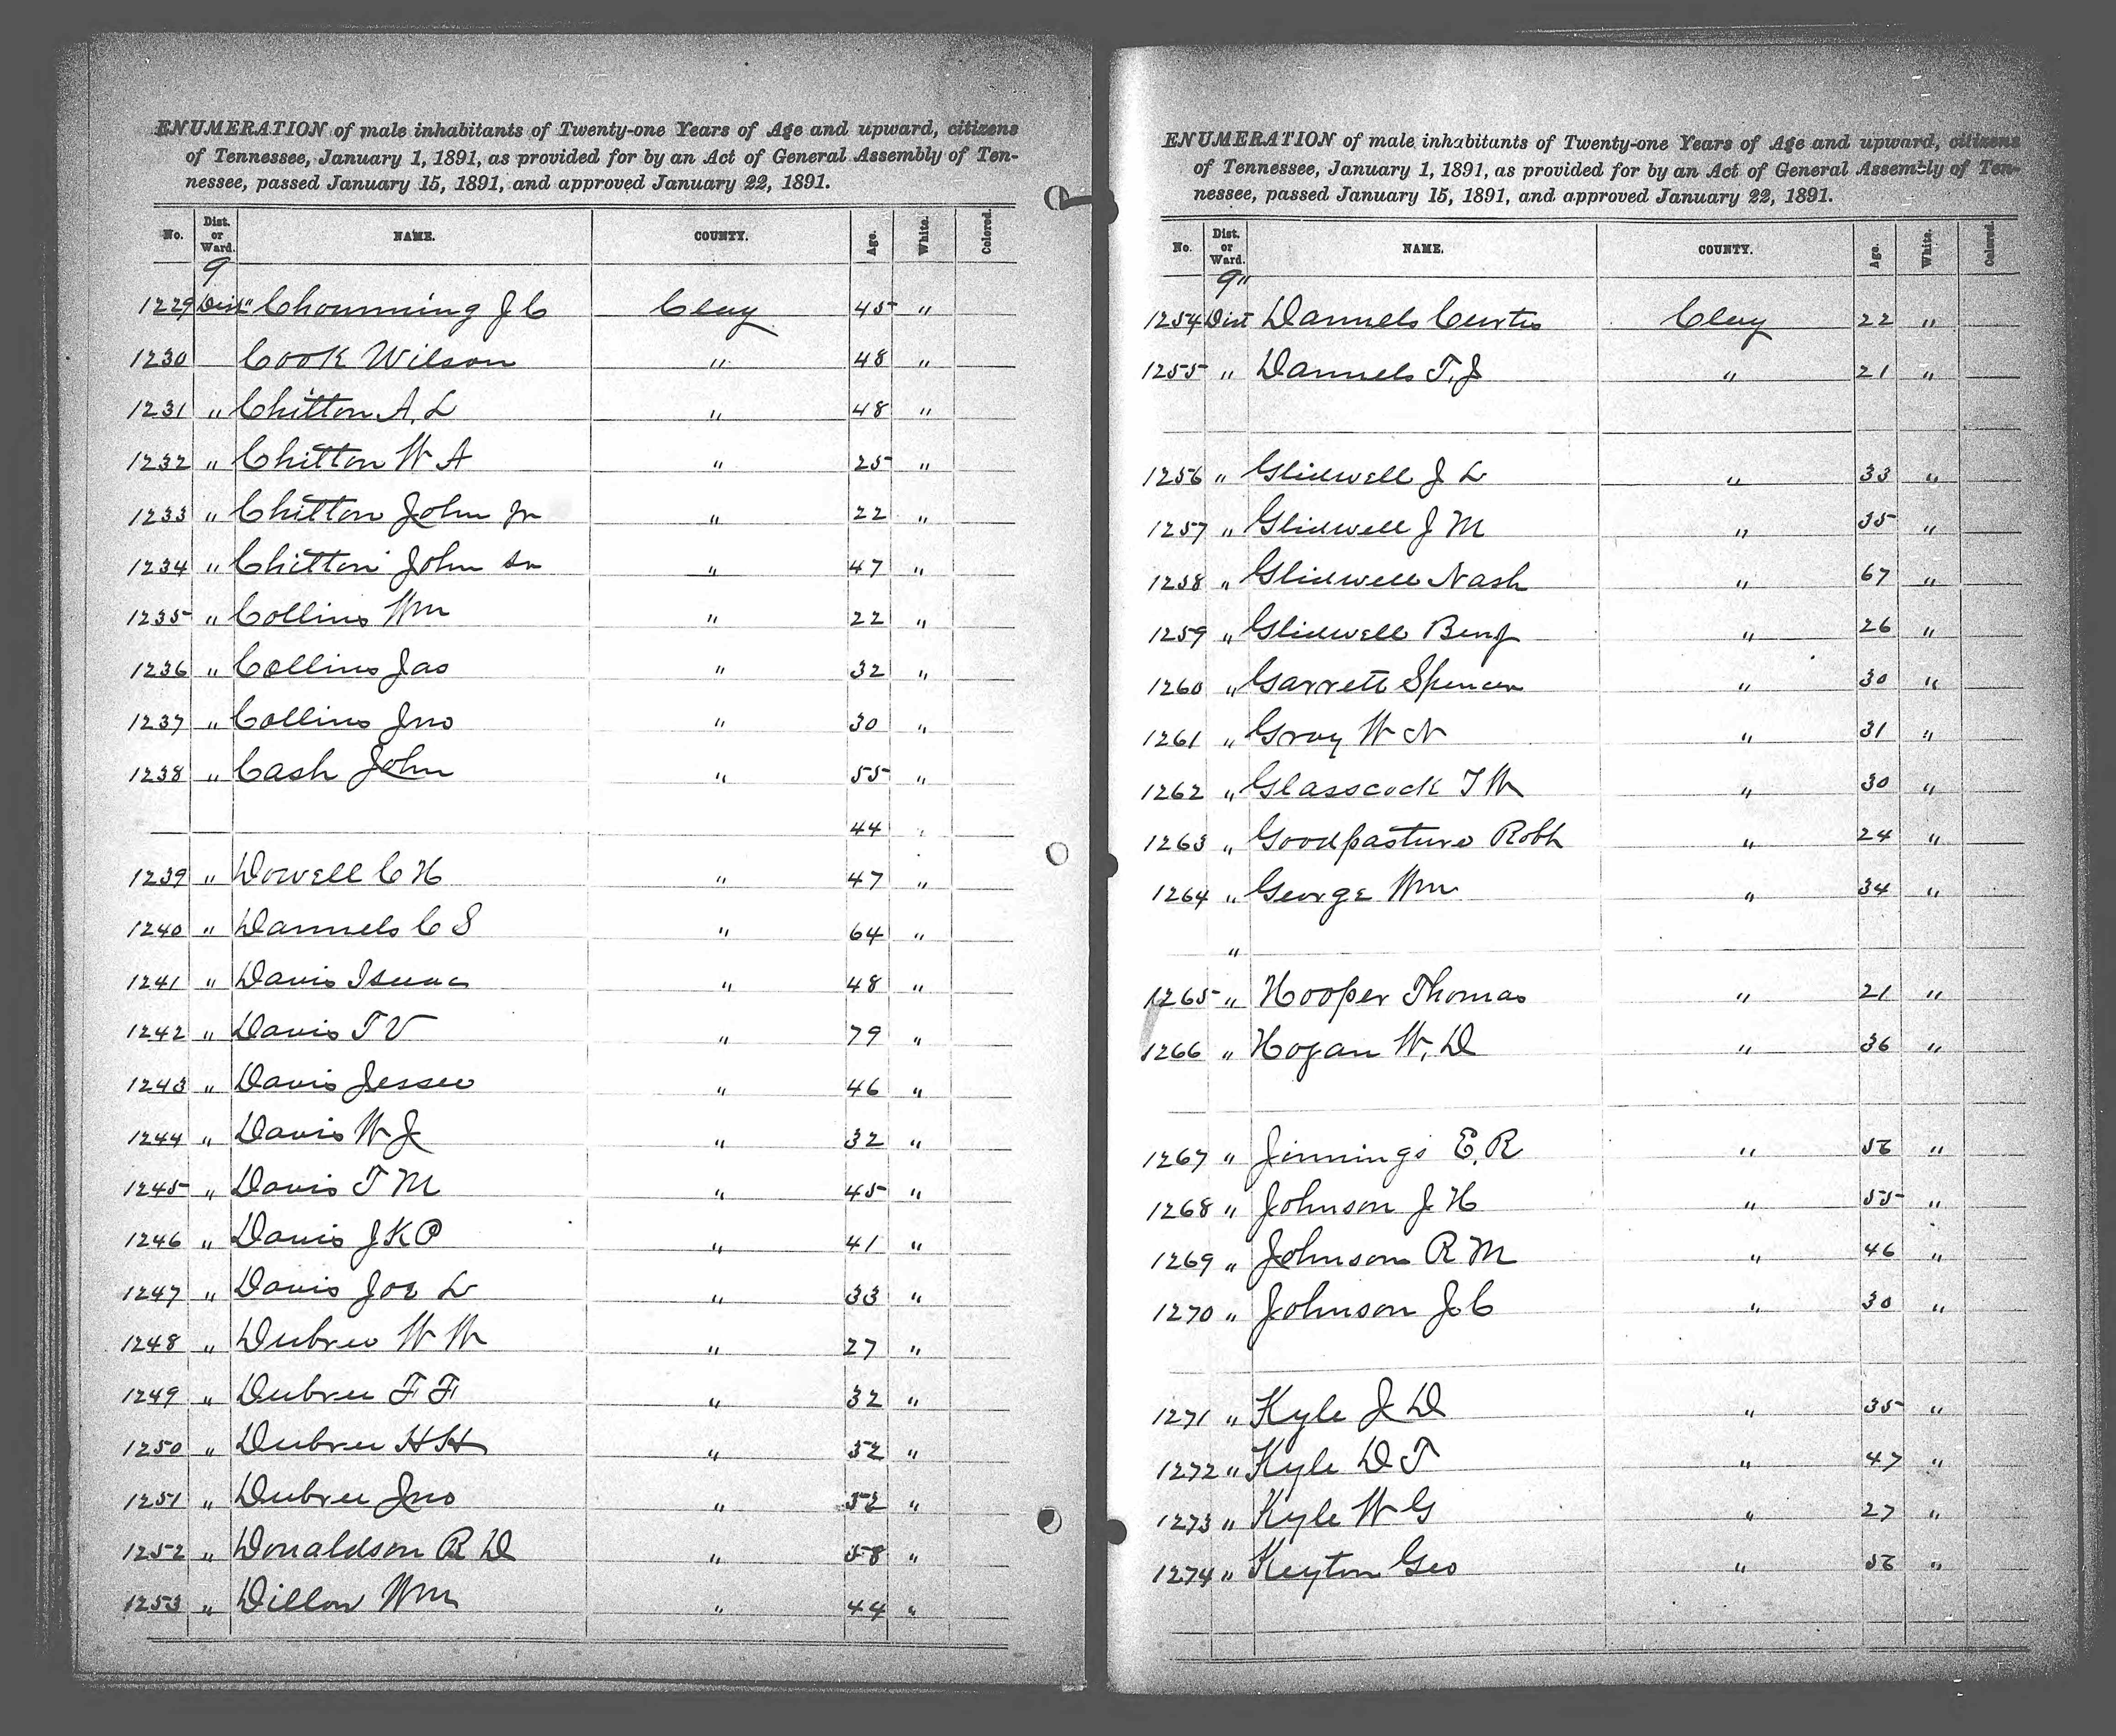 ENUMERATION of male inhabitants of Twenty-one Years of Age and upward, citizens
of Tennessee, January 1, 1891, as provided for by an Act of General Assembly of Ten-
nessee, passed January 15, 1891, and approved January 22, 1891.
No. Dist. or Ward. NAME. COUNTY. Age. White. Colored.
9
1229 Dist " Chowning J C Clay 45 "
1230 Cook Wilson " 48 "
1231 " Chitton A. L " 48 "
1232 " Chitton W A " 25 "
1233 " Chitton John Jr " 22 "
1234 " Chitton John Sr " 47 "
1235 " Collins Wm " 22 "
1236 " Collins Jas " 32 "
1237 " Collins Jno " 30 "
1238 " Cash John " 55 "
44 "
1239 " Dowell C H " 47 "
1240 " Dannels C S " 64 "
1241 " Davis Isaac " 48 "
1242 " Davis T V " 79 "
1243 " Davis Jessee " 46 "
1244 " Davis W J " 32 "
1245 " Davis T M " 45 "
1246 " Davis J K P " 41 "
1247 " Davis Joe L " 33 "
1248 " Dubree W W " 27 "
1249 " Dubree F F " 32 "
1250 " Dubree H H " 52 "
1251 " Dubree Jno " 52 "
1252 " Donaldson R D " 58 "
1253 " Dillon Wm " 44 "
ENUMERATION of male inhabitants of Twenty-one Years of Age and upward, citizens
of Tennessee, January 1, 1891, as provided for by an Act of General Assembly of Ten-
nessee, passed January 15, 1891, and approved January 22, 1891.
No. Dist. or Ward. NAME. COUNTY. Age. White. Colored.
9"
1254 Dist Dannels Curtis Clay 22 "
1255 " Dannels T. J " 21 "
1256 " Glidwell J L " 33 "
1257 " Glidwell J M " 35 "
1258 " Glidwell Nash " 67 "
1259 " Glidwell Benj " 26 "
1260 " Garrett Spencer " 30 "
1261 " Gray W N " 31 "
1262 " Glasscock T W " 30 "
1263 " Goodpasture Robt " 24 "
1264 " George Wm " 34 "
"
1265 " Hooper Thomas " 21 "
1266 " Hogan W. D " 36 "
1267 " Jinnings E. R " 56 "
1268 " Johnson J H " 55 "
1269 " Johnson R M " 46 "
1270 " Johnson J C " 30 "
1271 " Kyle J D " 35 "
1272 " Kyle D T " 47 "
1273 " Kyle W G " 27 "
1274 " Keyton Geo " 56 "